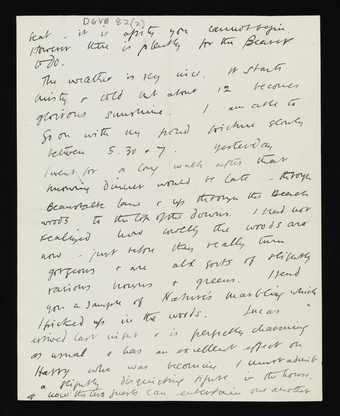 DGVB 82(2)
heat. it is a pity you cannot begin
However there is plenty for the Bearer
to do.
The weather is very nice. It starts
misty & cold but about 12 becomes
glorious sunshine. I am able to
go on with my pond picture slowly
between 5.30 & 7. Yesterday
I went for a long walk after that
knowing dinner would be late - through
Beanstalk lane & up through the Beach
woods to the top of the downs. I had not
realized how lovely the woods are
now - just before they really turn
gorgeous & are all sorts of slightly
various browns & greens. I send
you a sample of Nature's marbling which
I picked up in the woods. Lucas
arrived last night & is perfectly charming
as usual & has an excellent effect on
Harry who was becoming I must admit a
slightly disquieting figure in the house.
now the two guests can entertain one another